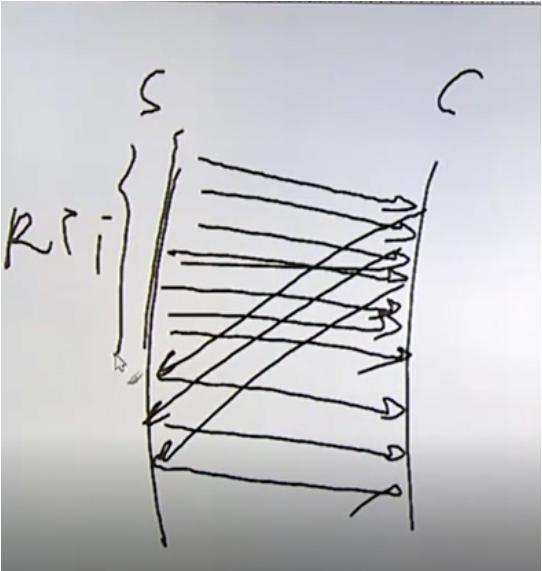 S C
RTT